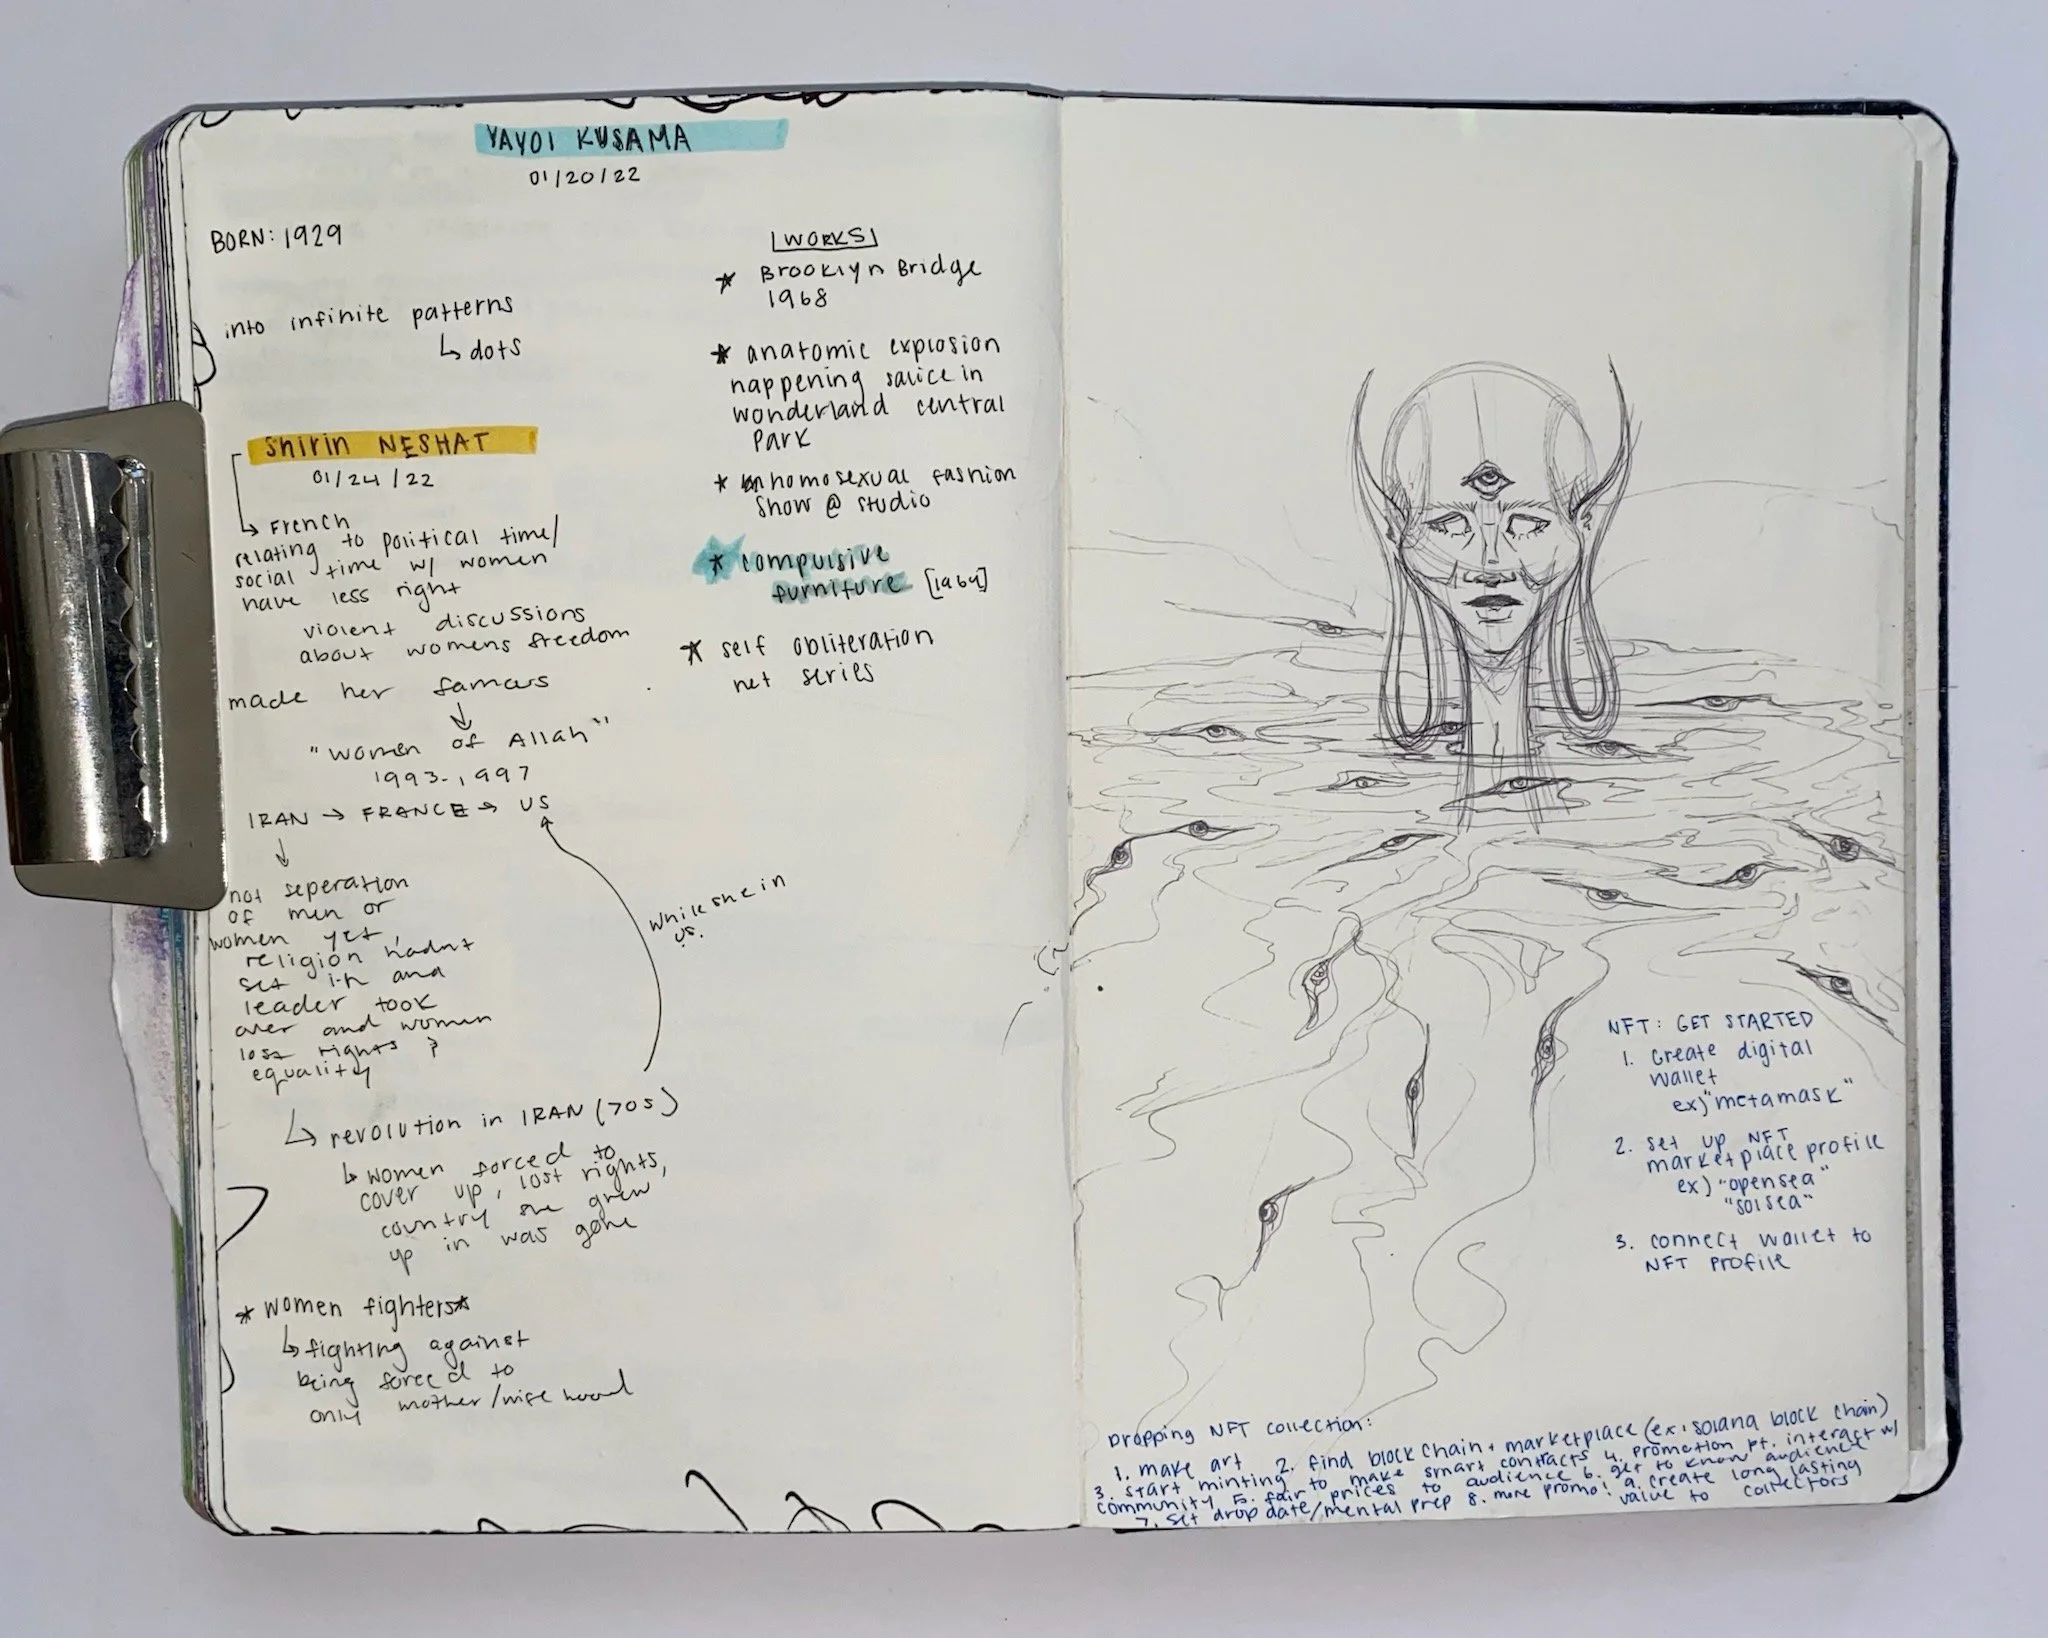 YAYOI KUSAMA
01/20/22
BORN: 1929
into infinite patterns
↳ dots
Shirin NESHAT
01/24/22
↳ French
relating to political time/
social time w/ women
have less right
violent discussions
about womens freedom
made her famous
↓
"women of Allah"
1993-1997
IRAN → FRANCE → US
↓
not seperation
of men or
women yet,
religion hadnt
set in and
leader took
over and women
lost rights &
equality
while she in
us.
↳ revolution in IRAN (70s)
↳ women forced to
cover up, lost rights,
country she grew
up in was gone
* women fighters *
↳ fighting against
being forced to
only mother/wife hood
WORKS
* Brooklyn Bridge
1968
* anatomic explosion
happening salice in
wonderland central
Park
* homosexual fashion
show @ studio
* compulsive
furniture [1964]
* self obliteration
net series
NFT: GET STARTED
1. create digital
wallet
ex) "metamask"
2. set up NFT
marketplace profile
ex) "opensea"
"solsea"
3. connect wallet to
NFT profile
Dropping NFT collection:
1. make art 2. find block chain + marketplace (ex: solana block chain)
3. start minting to make smart contracts 4. promotion pt. interact w/
community 5. fair prices to audience 6. get to know audience
7. set drop date/mental prep 8. more promo! 9. create long lasting
value to collectors